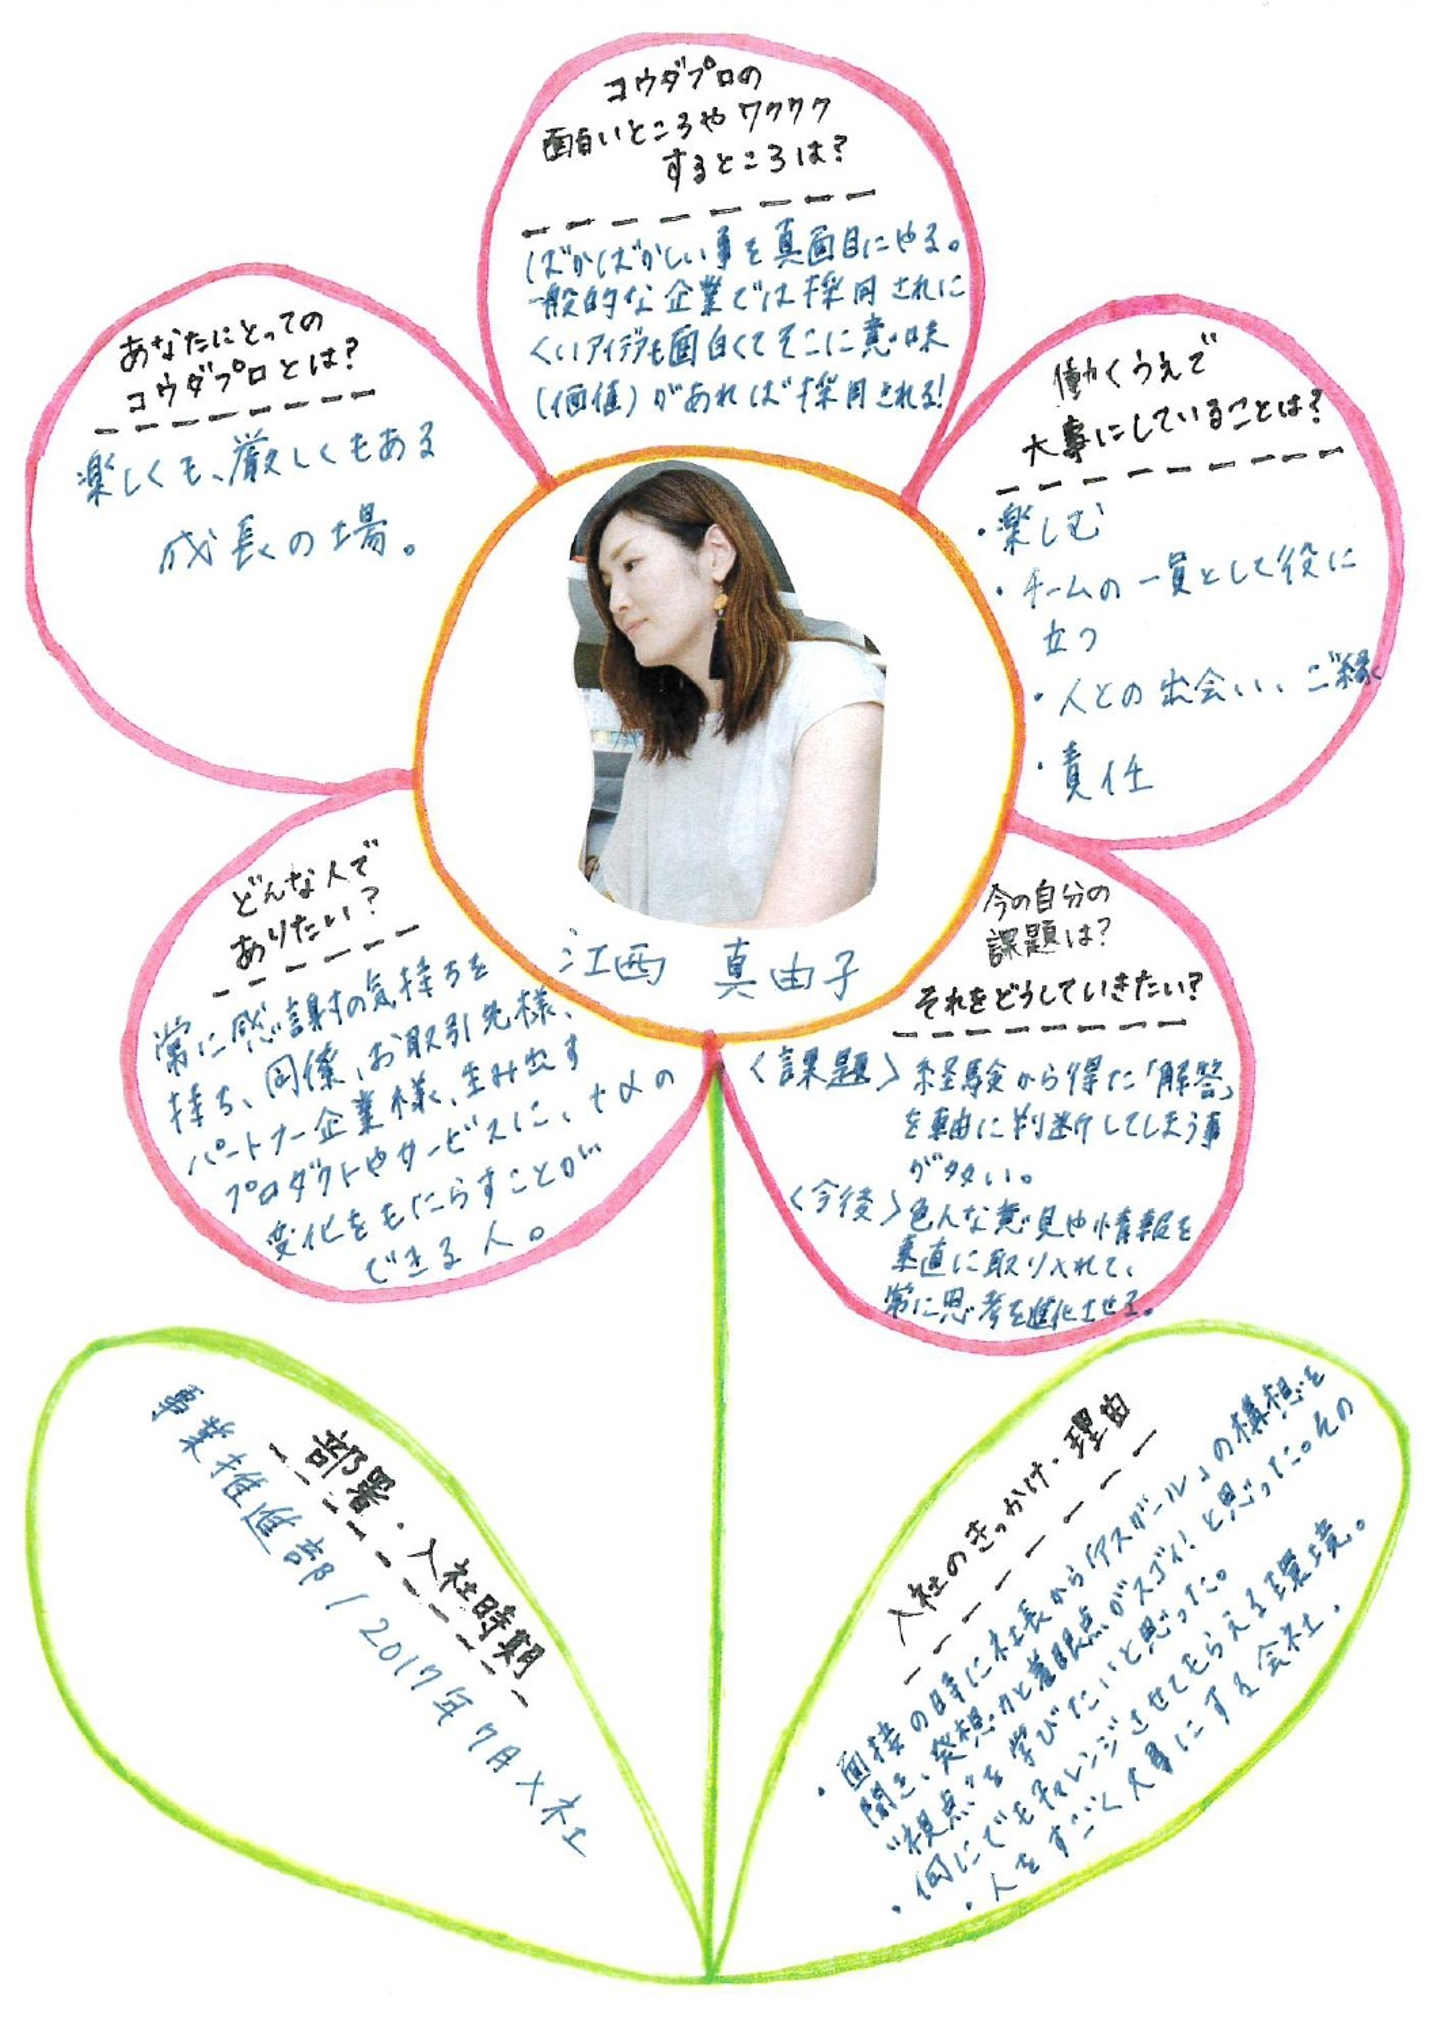 コウダプロの
面白いところやワクワク
するところは?
ばかばかしい事を真面目にやる。
一般的な企業では採用されに
くいアイデアも面白くてそこに意味
(価値)があれば採用される!
あなたにとっての
コウダプロとは?
楽しくも、厳しくもある
成長の場。
働くうえで
大事にしていることは?
・楽しむ
・チームの一員として役に
立つ
・人との出会い、ご縁
・責任
江西 真由子
どんな人で
ありたい?
常に感謝の気持ちを
持ち、同僚、お取引先様、
パートナー企業様、生み出す
プロダクトやサービスに、+αの
変化をもたらすことが
できる人。
今の自分の
課題は?
それをどうしていきたい?
〈課題〉経験から得た「解答」
を軸に判断してしまう事
が多い。
〈今後〉色んな意見や情報を
素直に取り入れて、
常に思考を進化させる。
部署・入社時期
事業推進部/2017年7月入社
入社のきっかけ・理由
・面接の時に社長から「アスガール」の構想を
聞き、発想力と着眼点がスゴイ!と思った。その
"視点"を学びたいと思った。
・何にでもチャレンジさせてもらえる環境。
・人をすごく大事にする会社。